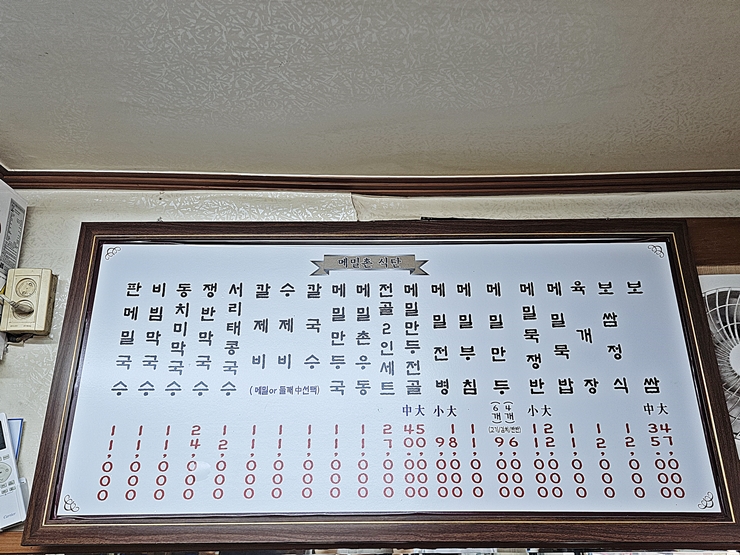 메밀촌 식단
판메밀국수
11,000
비빔막국수
11,000
동치미막국수
11,000
쟁반막국수
24,000
서리태콩국수
12,000
칼제비
11,000
수제비
11,000
칼국수
11,000
(메밀or들깨 中선택)
메밀만둣국
11,000
메밀촌우동
11,000
전골2인세트
27,000
메밀만두전골
中大
40,000
50,000
메밀전병
小大
메밀부침
11,000
메밀만두
(6개)(4개)
(고기/김치/반반)
메밀묵쟁반
小大
11,000
22,000
메밀묵밥
11,000
육개장
보쌈정식
보쌈
中大
35,000
47,000